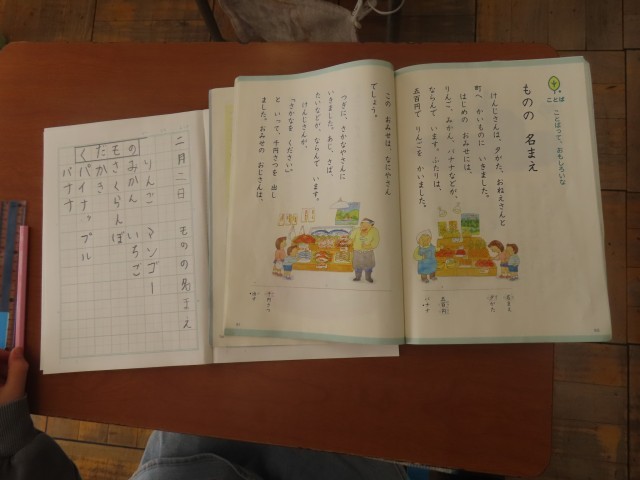 ことば
ことばって、おもしろいな
ものの 名まえ
けんじさんは、夕がた、おねえさんと
町へ かいものに いきました。
はじめの おみせには、
りんご、みかん、バナナなどが、
ならんで います。ふたりは、
五百円で りんごを かいました。
この おみせは、なにやさん
でしょう。
つぎに、さかなやさんに
いきました。あじ、さば、
たいなどが、ならんで います。
けんじさんが、
「さかなを ください。」
と いって、千円さつを 出し
ました。おみせの おじさんは、
夕がた
五百円
バナナ
千円さつ
出す
二月二日 ものの名まえ
りんご マンゴー
みかん いちご
さくらんぼ
かき
パイナップル
バナナ
くだもの